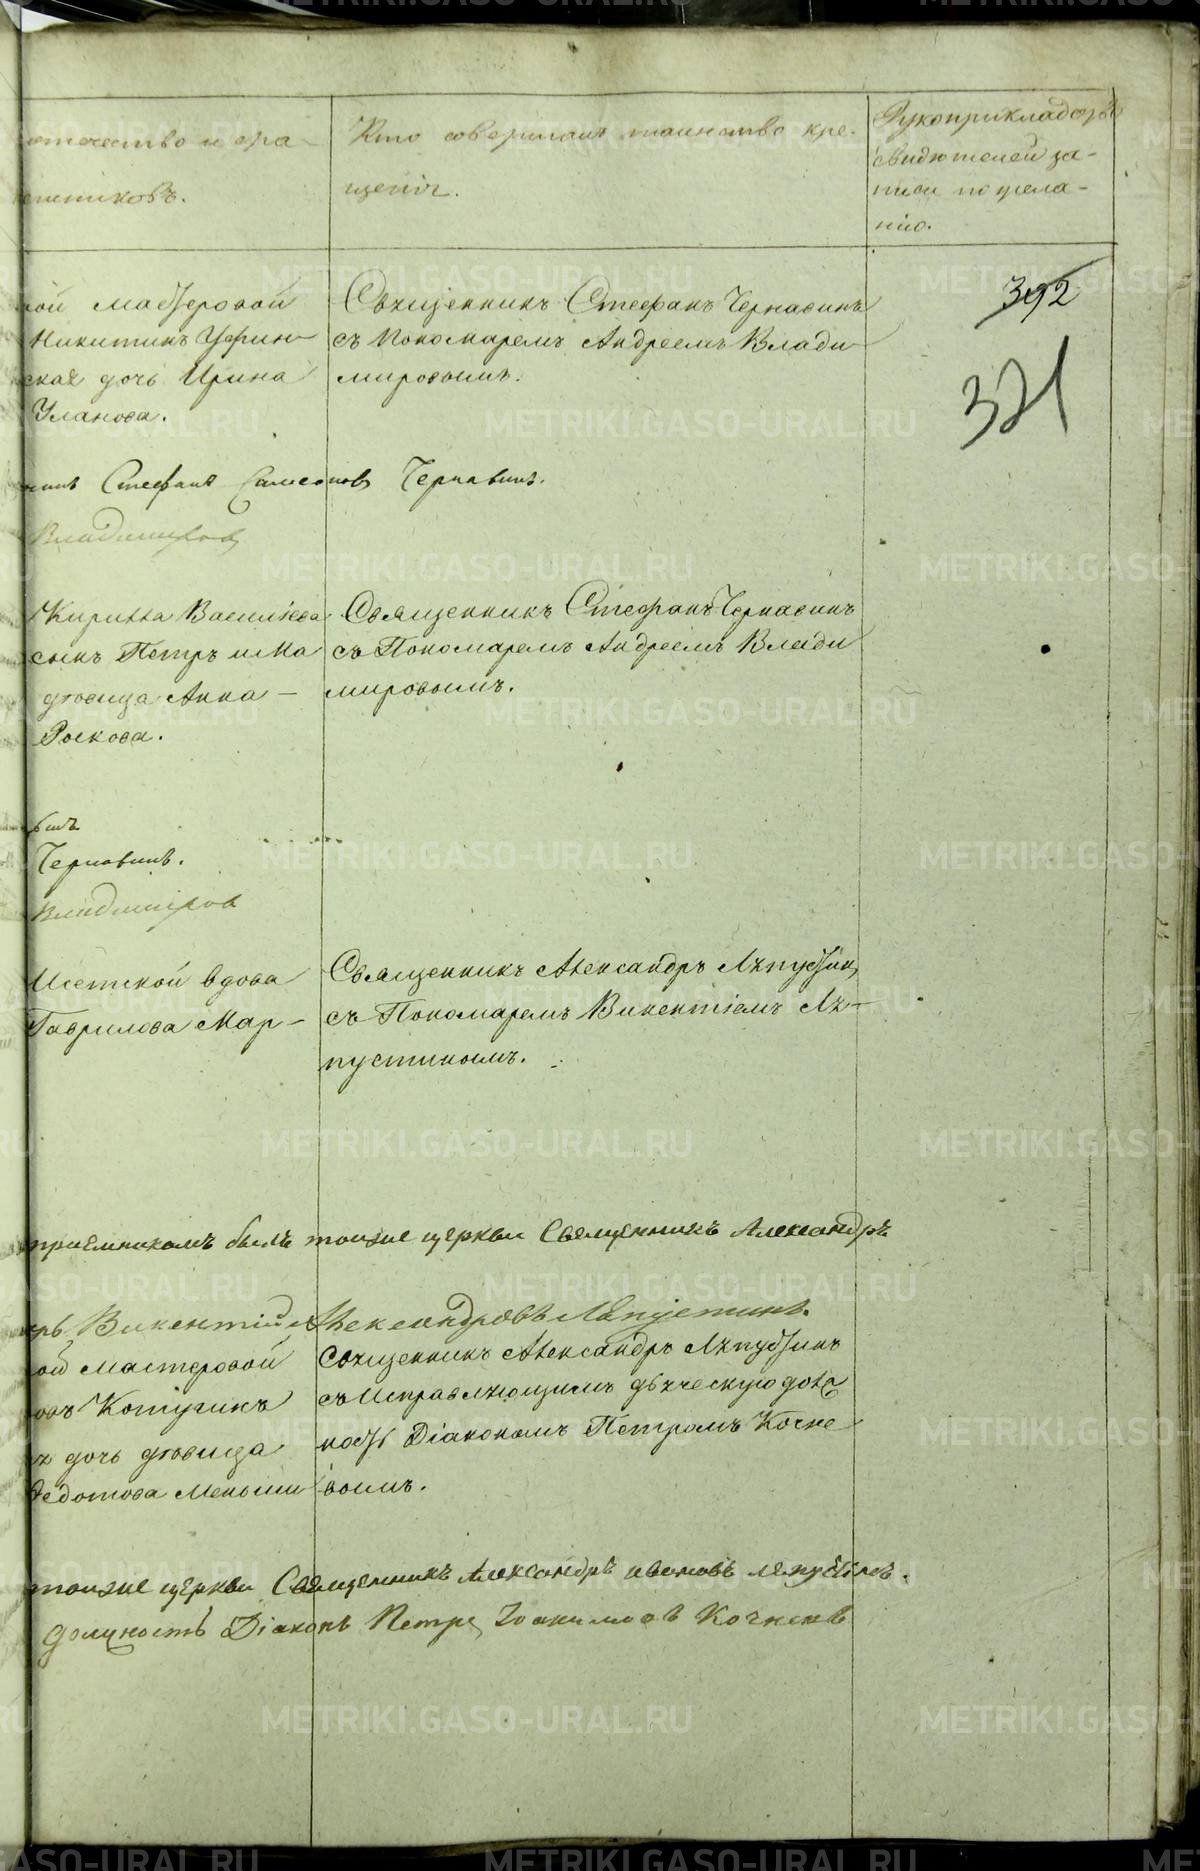 отчество и фа-
Кто совершалъ таинство кре-
Рукоприкладство
щенія.
свидѣтелей за-
писи по жела-
нію.
392
321
ой мастеровой
Никитинъ Уфин-
ская дочь Ирина
Уланова.
Священникъ Стефанъ Чернавинъ
съ Пономаремъ Андреемъ Влади
мировымъ.
Стефанъ Самсонов Чернавинъ.
Владимиров
Кирилла Васильева
сынъ Петръ и На
дѣвица Анна —
Роскова.
Священникъ Стефанъ Чернавинъ
съ Пономаремъ Андреемъ Влади
мировымъ.
Чернавинъ.
Владиміров
Исетской вдова
Гаврилова Мар-
Священникъ Александръ Ляпустинъ
съ Пономаремъ Викентіемъ Ля-
пустинымъ.
пріемникомъ былъ тоиже церкви Священникъ Александръ
Викентій Александровъ Ляпустинъ.
ой мастеровой
Котугинъ
дочь дѣвица
Федотова Меньши
Священникъ Александръ Ляпустинъ
съ Исправляющимъ дьяческую долж
ность Діакономъ Петромъ Кочне
вымъ.
тоиже церкви Священникъ Александръ Ивановъ Ляпустинъ.
должность Діаконъ Петръ Іоакимовъ Кочневъ
METRIKI.GASO-URAL.RU